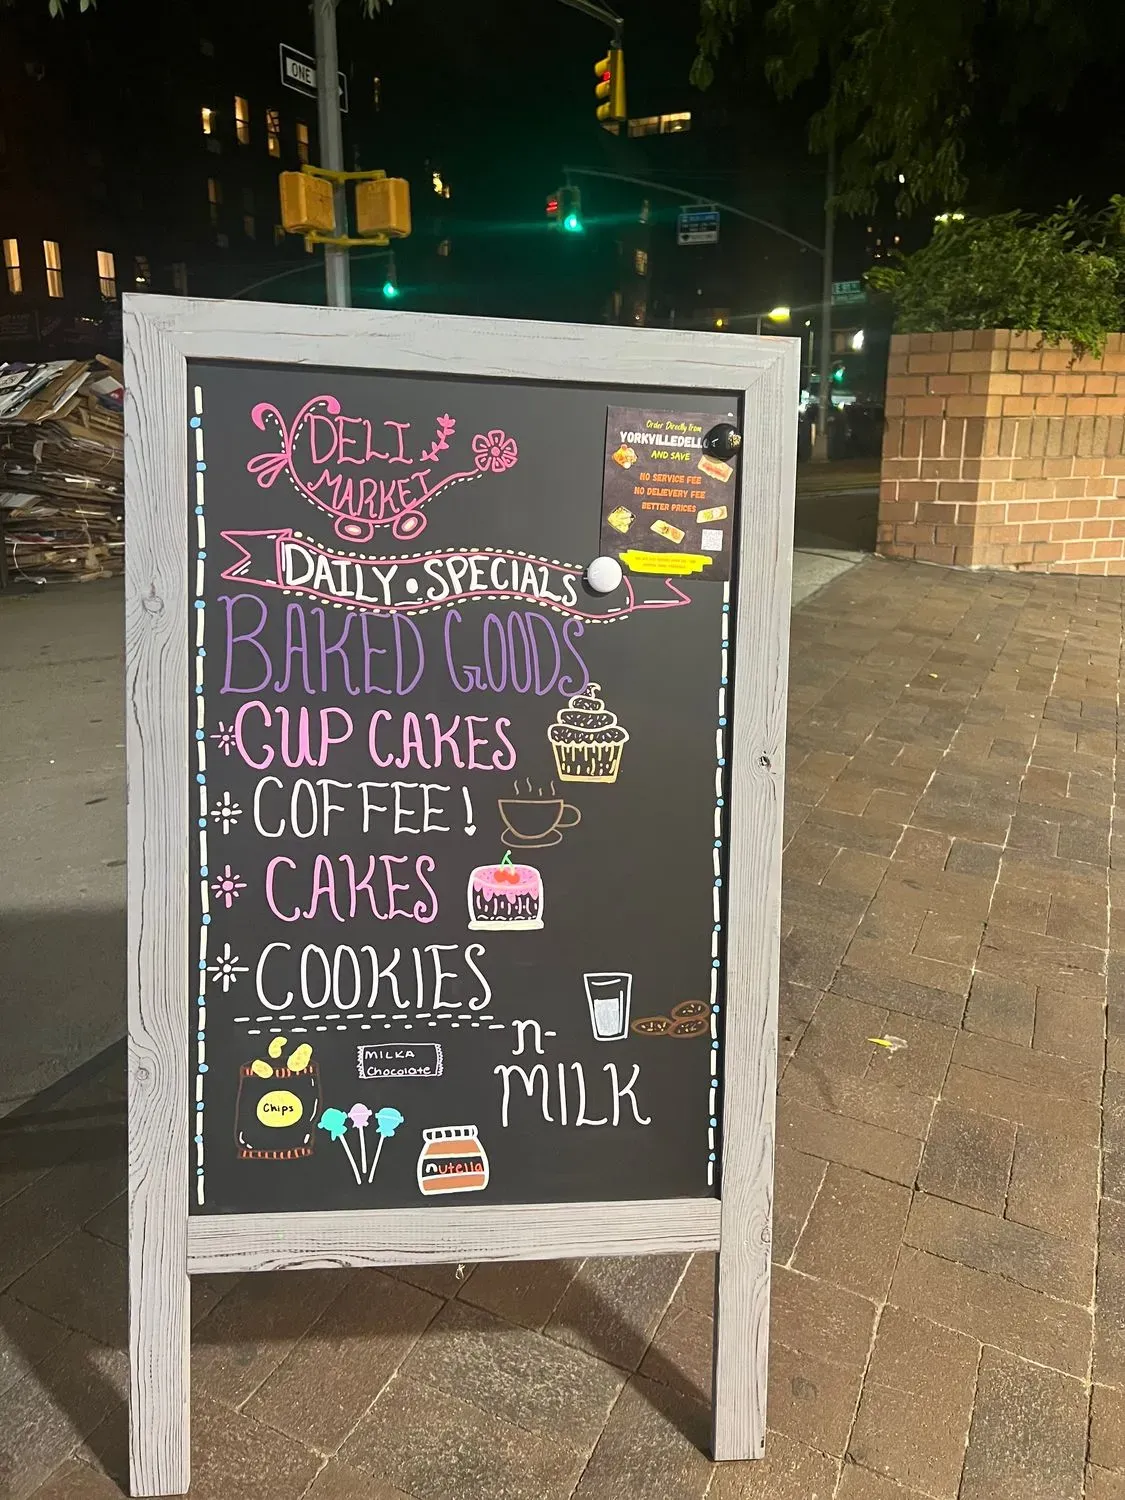 ONE
DELI
MARKET
Order Directly from
YORKVILLEDELI
AND SAVE
NO SERVICE FEE
NO DELIEVERY FEE
BETTER PRICES
DAILY • SPECIALS
BAKED GOODS
CUP CAKES
COFFEE!
CAKES
COOKIES
n-
MILK
MILKA
Chocolate
Chips
nutella